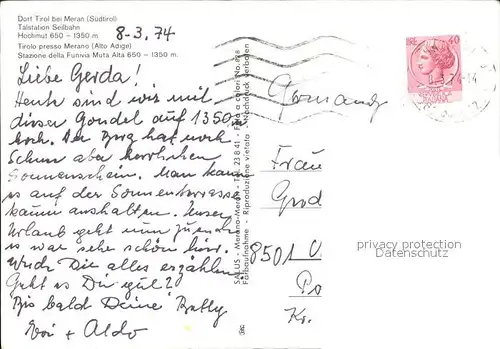 Dorf Tirol bei Meran (Südtirol)
Talstation Seilbahn
Hochmut 650 – 1350 m.
Tirolo presso Merano (Alto Adige)
Stazione della Funivia Muta Alta 650 – 1350 m.
8-3.74
Liebe Gerda!
Heute sind wir mit
dieser Gondel auf 1350
hoch. Der Berg hat noch
Schnee aber herrlichen
Sonnenschein. Man kann
es auf der Sonnenterrasse
kaum aushalten. Unser
Urlaub geht nun zu Ende
es war sehr schön hier.
Werde Dir alles erzählen
Geht es Dir gut?
Bis bald Deine Betty
+ Aldo
SALUS - Merano-Meran - Tel. 23841 - Foto a colori No.
Farbaufnahme - Riproduzione vietata - Nachdruck verboten
40
Germany
Frau
Gerd
8501
Po
privacy protection
Datenschutz